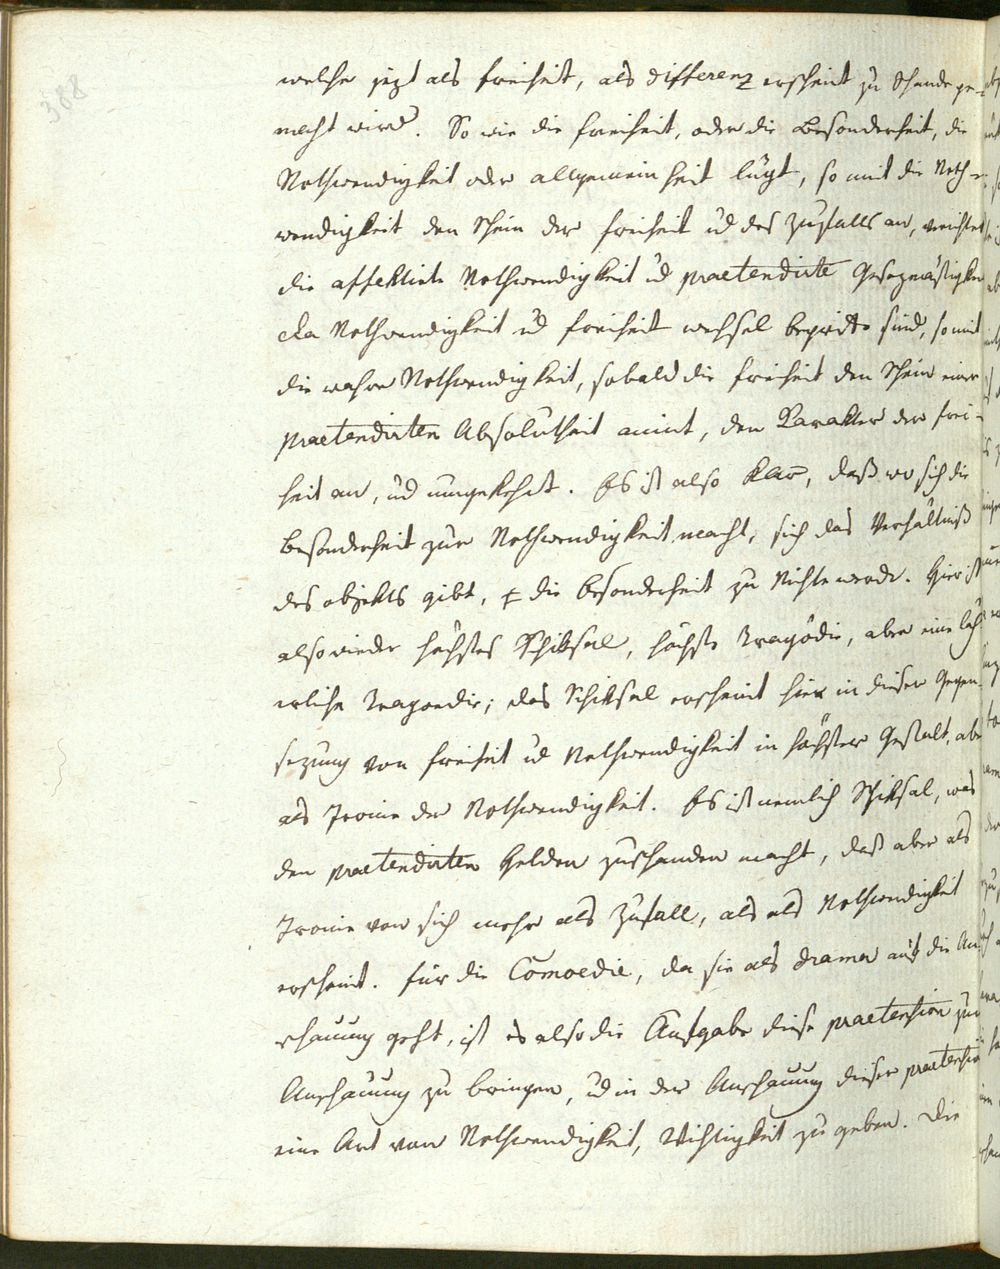 388
welche jezt als freiheit, als differenz erscheint zu Schande ge-
macht wird. So wie die freiheit, oder die Besonderheit, die
Nothwendigkeit oder allgemeinheit lügt, so nimt die Noth-
wendigkeit den Schein der freiheit ud des Zufalls an, vernichtet
die affektirte Nothwendigkeit ud praetendirte Gesezmäßigkeit
Da Nothwendigkeit ud freiheit wechsel begriffe sind, so nimt
die wahre Nothwendigkeit, sobald die freiheit den Schein einer
praetendirten Absolutheit animt, den Karakter der frei-
heit an, ud umgekehrt. Es ist also klar, daß wo sich die
Besonderheit zur Nothwendigkeit macht, sich das Verhältniß
des objekts gibt, die besonderheit zu Nichte werde. Hier ist
also wieder höchstes Schiksal, höchste Tragödie, aber eine läch
erliche Tragoedie; das Schiksal erscheint hier in dieser Gegen-
sezung von freiheit ud Nothwendigkeit in höchster Gestalt, aber
als Ironie der Nothwendigkeit. Es ist nemlich Schiksal, was
den praetendirten Helden zuschanden macht, daß aber als
Ironie von sich mehr als Zufall, als als Nothwendigkeit
erscheint. für die Comoedie, da sie als drama auf die An
schauung geht, ist es also die Aufgabe diese praetension zur
Anschauung zu bringen, ud in der Anschauung dieser praetension
eine Art von Nothwendigkeit, Wichtigkeit zu geben. Die